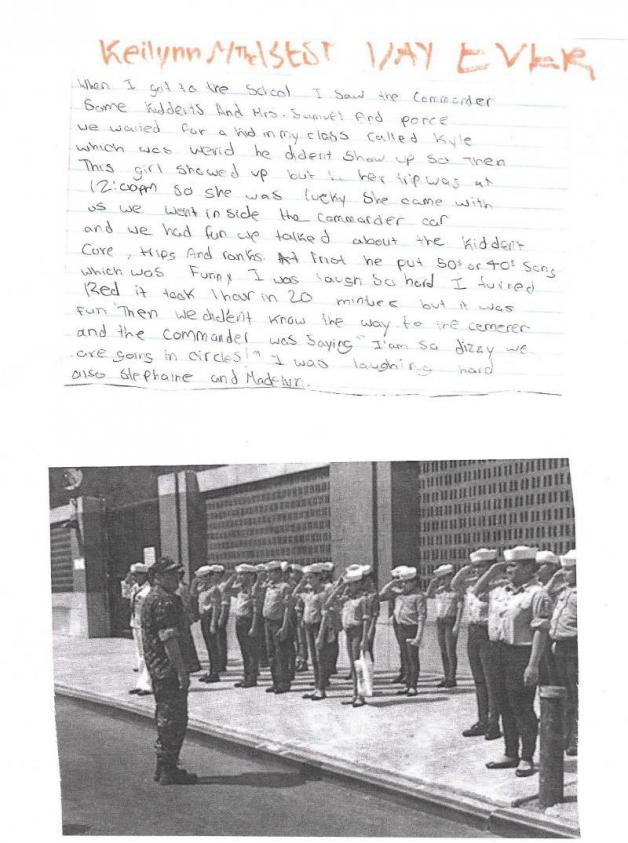 Keilynn EVER
When I got to the School I Saw the Commander
Some Kidderts And Mrs. Samuel And ponce
we waited for a kid in my class called Kyle
which was werid he dident Show up So Then
This girl showed up but her trip was at
12:00pm so she was lucky She came with
us we went in side the commander car
and we had fun we talked about the Kiddent
Core, trips And ranks he put 50s or 40s Song
which was Funny I was laugh So hard I turned
Red it took 1 hour in 20 mintues but it was
fun Then we dident know the way to the
and the Commander was Saying "I'am So dizzy we
are going in circles!" I was laughing hard
also Stephaine and Madelyn.